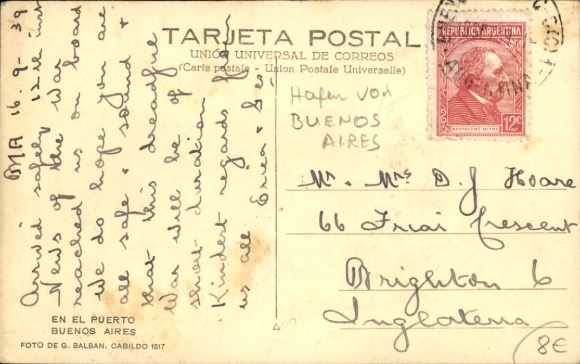 TARJETA POSTAL
UNION UNIVERSAL DE CORREOS
(Carte postale - Union Postale Universelle)
BMA 16-9-39
Arrived safely 12th inst
News of the War
reached us on board
We do hope you are
all safe & sound &
that this dreadful
War will be of
short duration
Kindest regards from
us all Erica & Les
Hafen von
BUENOS
AIRES
REPUBLICA ARGENTINA
BARTOLOMÉ MITRE
12c
ARGENTINA
Mr & Mrs D. J Hoare
66 Friar Crescent
Brighton 6
Inglaterra
EN EL PUERTO
BUENOS AIRES
FOTO DE G. BALBAN. CABILDO 1517
8€